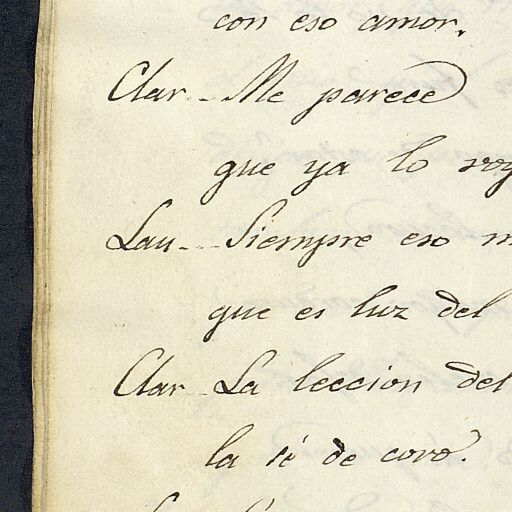 con eso amor.
Clar.. Me parece
que ya lo voy
Lau.. Siempre eso m
que es luz del
Clar.. La leccion del
la sé de coro.